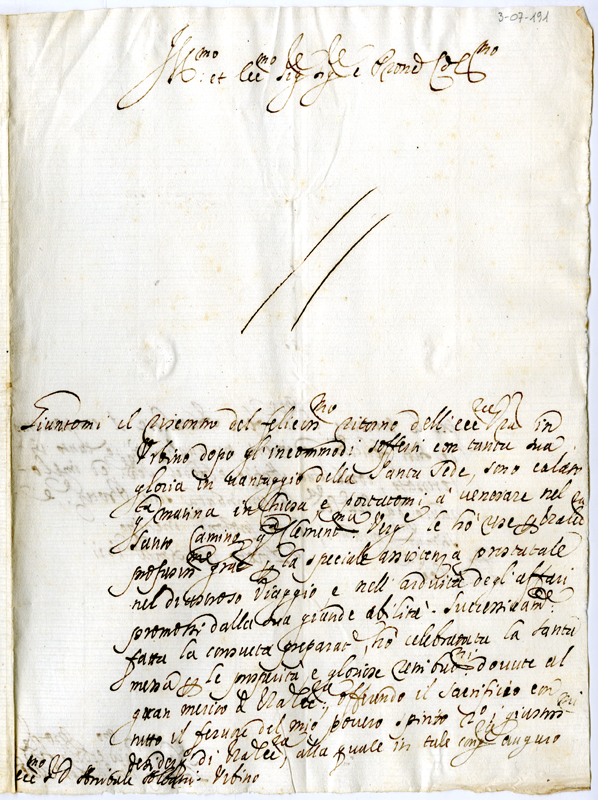 3-07-191
Ill.mo et ecc.mo Sig.re Sig.re e Pron Col.mo
Giuntomi il riscontro del felicis.mo ritorno dell'ecc.za V.ra in
Urbino dopo gl'incommodi sofferti con tanta sua
gloria in vantaggio della Santa Sede, sono calato
q.ta matina in Chiesa e portatomi a' venerare nel
Santo Camino q.ta Clement.ma Verg.e, le hò rese
profusis.me graz.e la speciale assistenza prestatale
nel disastroso Viaggio e nell'arduità degl'affari
promossi dalla sua grande abilità. Successivam.te
fatta la consueta preparat.e hò celebrata la Santa
messa le prosperità e gloriose dovute al
gran merito di V.ra ecc.za, offrendo il Sacrificio con
tutto il fervore del mio povero spirito giustis.mi
desiderij di V.ra ecc.za, alla quale in tale cong.ra auguro
ecc.mo S. D. Annibale Albani Urbino